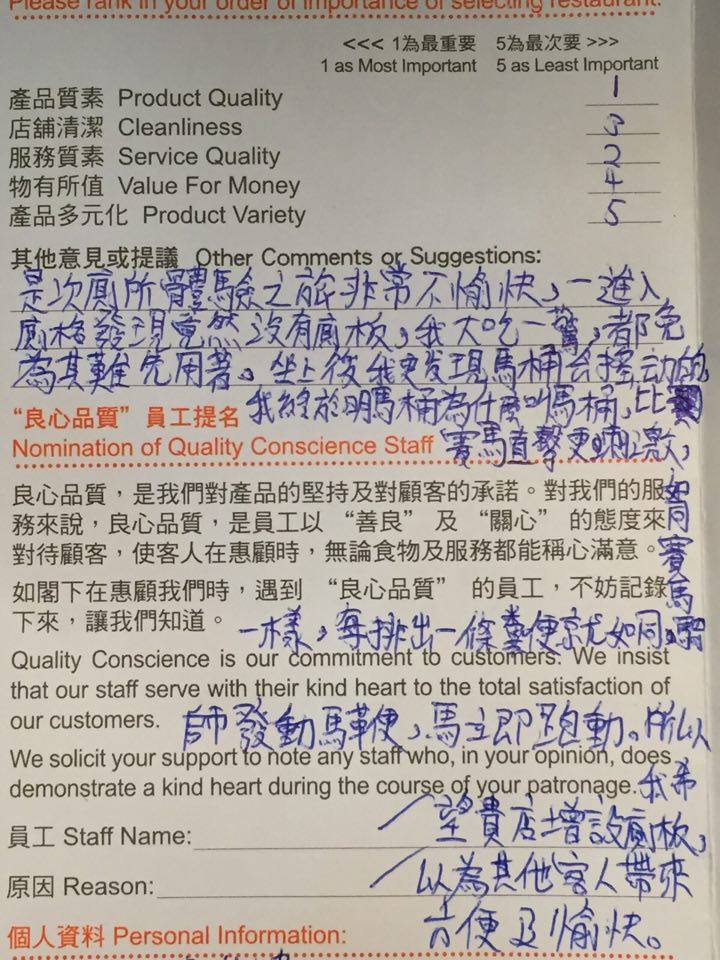 Please rank in your order of importance of selecting restaurant.
<<< 1為最重要 5為最次要 >>>
1 as Most Important 5 as Least Important
產品質素 Product Quality 1
店舖清潔 Cleanliness 3
服務質素 Service Quality 2
物有所值 Value For Money 4
產品多元化 Product Variety 5
其他意見或提議 Other Comments or Suggestions:
是次廁所體驗之旅非常不愉快，一進入
廁格發現竟然沒有廁板，我大吃一驚，都免
為其難先用著。坐上後我更发現馬桶会搖动的，
“良心品質” 員工提名 我終於明馬桶為什麼叫馬桶，比
Nomination of Quality Conscience Staff 賽馬直擊更刺激，
如同賽馬
良心品質，是我們對產品的堅持及對顧客的承諾。對我們的服
務來說，良心品質，是員工以 “善良” 及 “關心” 的態度來
對待顧客，使客人在惠顧時，無論食物及服務都能稱心滿意。
如閣下在惠顧我們時，遇到 “良心品質” 的員工，不妨記錄
下來，讓我們知道。 一樣，每排出一條糞便就如同騎
Quality Conscience is our commitment to customers. We insist
that our staff serve with their kind heart to the total satisfaction of
our customers. 師發動馬鞭，馬立即跑動。所以
We solicit your support to note any staff who, in your opinion, does
demonstrate a kind heart during the course of your patronage. 我希
望貴店增設廁板，
員工 Staff Name:
以為其他客人帶來
原因 Reason:
方便及愉快。
個人資料 Personal Information: